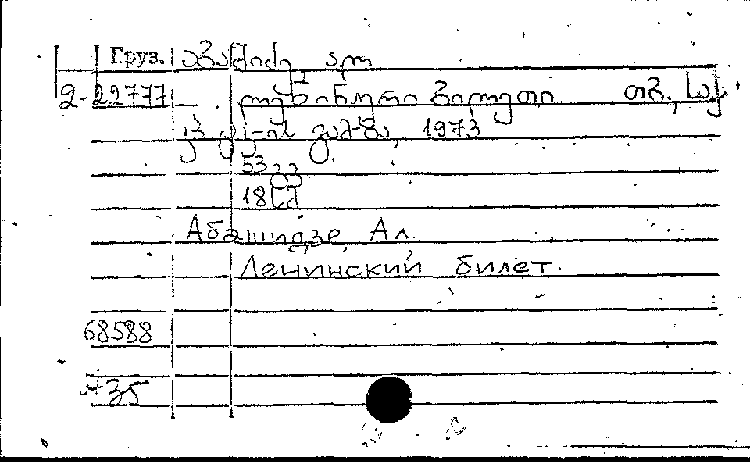 Груз. აბაშიძე, ალ.
2-22777 ლენინური ბილეთი თბ., საქ
კპ ცკ-ის გამ-ბა, 1973
53 გვ
18 სმ
Абашидзе, Ал.
Ленинский билет.
68588
735